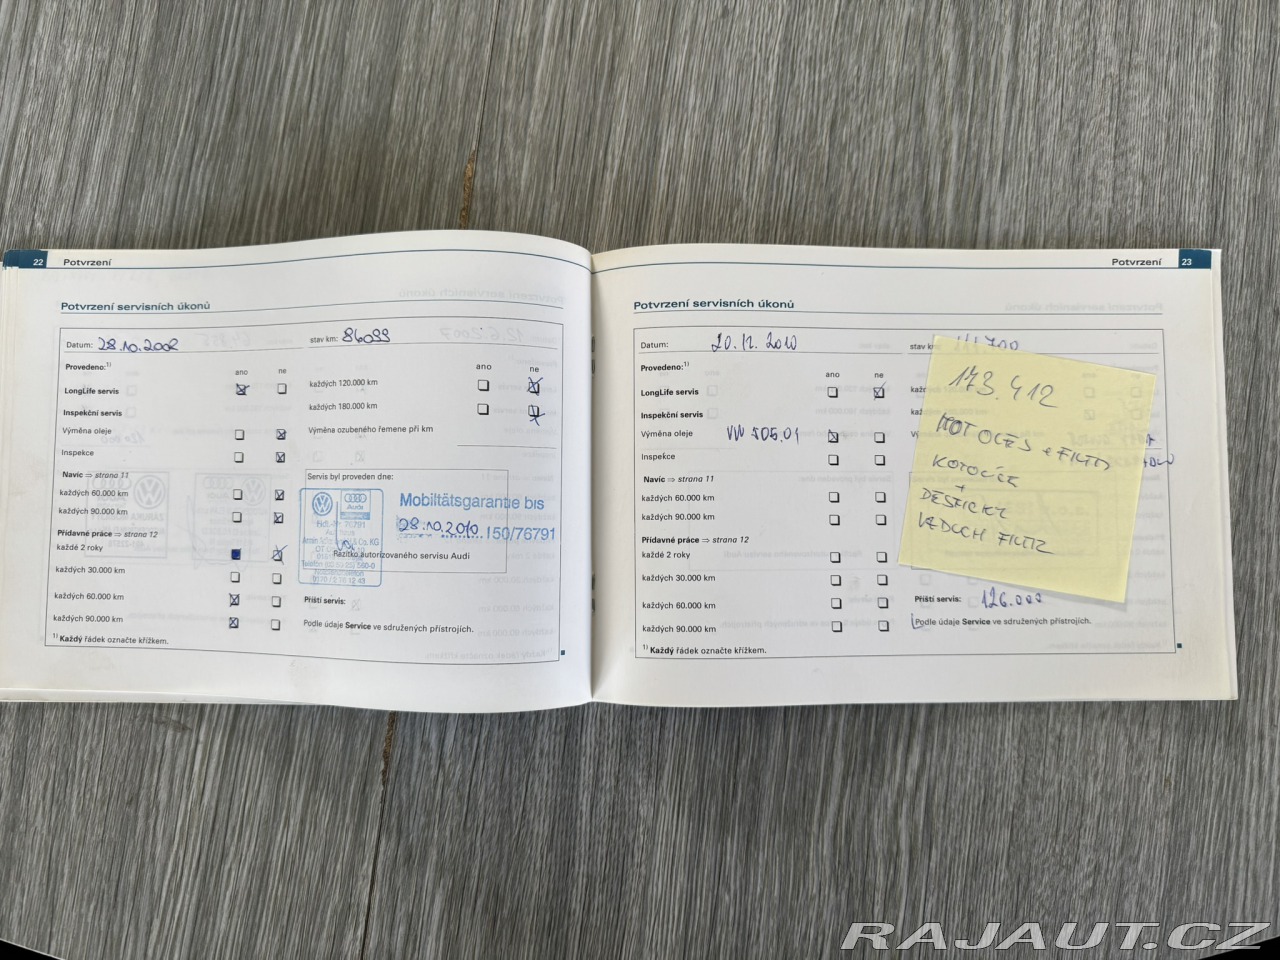 22 Potvrzení
Potvrzení servisních úkonů
Datum: 28.10.2008 stav km: 86099
Provedeno:¹⁾
ano ne
LongLife servis
Inspekční servis
Výměna oleje
Inspekce
Navíc ⇒ strana 11
každých 60.000 km
každých 90.000 km
Přídavné práce ⇒ strana 12
každé 2 roky
každých 30.000 km
každých 60.000 km
každých 90.000 km
¹⁾ Každý řádek označte křížkem.
ano ne
každých 120.000 km
každých 180.000 km
Výměna ozubeného řemene při km
Servis byl proveden dne:
Audi
Hdl.-Nr. 76791
Mobiltätsgarantie bis
28.10.2010 150/76791
Razítko autorizovaného servisu Audi
Příští servis:
Podle údaje Service ve sdružených přístrojích.
Potvrzení 23
Potvrzení servisních úkonů
Datum: 20.12.2010 stav km:
Provedeno:¹⁾
ano ne
LongLife servis
Inspekční servis
Výměna oleje VW 505.01
Inspekce
Navíc ⇒ strana 11
každých 60.000 km
každých 90.000 km
Přídavné práce ⇒ strana 12
každé 2 roky
každých 30.000 km
každých 60.000 km
každých 90.000 km
¹⁾ Každý řádek označte křížkem.
173.412
MOT OLEJ + FILTR
KOTOUČE
+
DESTIČKY
VZDUCH FILTR
Příští servis: 126.000
Podle údaje Service ve sdružených přístrojích.
RAJAUT.CZ